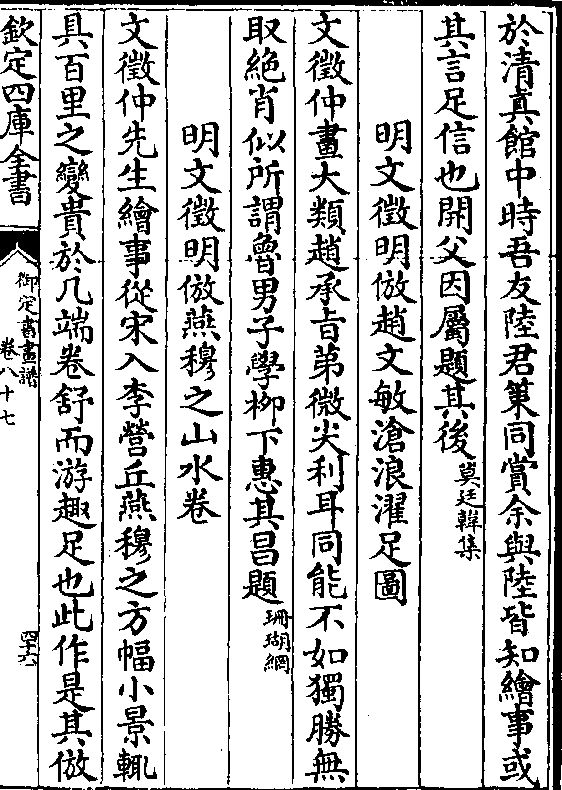 於清真館中時吾友陸君䇿同賞余與陸皆知繪事或
其言足信也開父因屬題其後莫廷韓集
明文徵明倣趙文敏滄浪濯足圖
文徵仲畫大類趙承旨第微尖利耳同能不如獨勝無
取絶肖似所謂魯男子學栁下惠其昌題珊瑚網
明文徵明倣燕穆之山水卷
文徵仲先生繪事從宋入李營丘燕穆之方幅小景輒
具百里之變貴於几端卷舒而游趣足也此作是其倣
欽定四庫全書
御定書畫譜
卷八十七
四十六